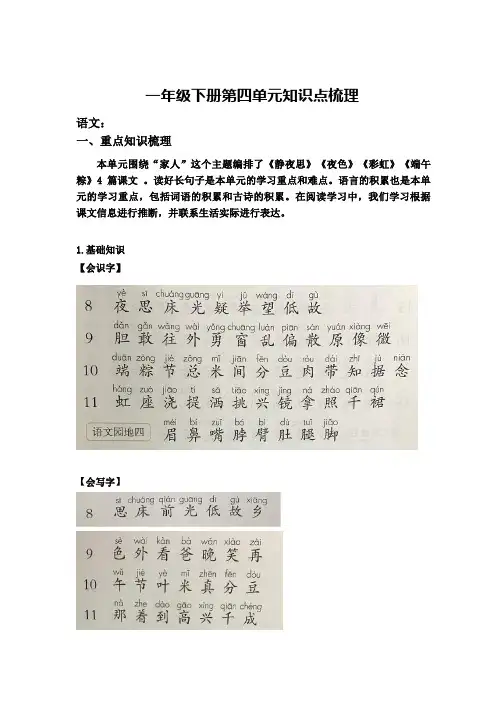 一年级下册第四单元知识点梳理
语文：
一、重点知识梳理
本单元围绕“家人”这个主题编排了《静夜思》《夜色》《彩虹》《端午
粽》4 篇课文 。读好长句子是本单元的学习重点和难点。语言的积累也是本单
元的学习重点，包括词语的积累和古诗的积累。在阅读学习中，我们学习根据
课文信息进行推断，并联系生活实际进行表达。
1.基础知识
【会识字】
yè sī chuáng guāng yí jǔ wàng dī gù
8 夜 思 床 光 疑 举 望 低 故
dǎn gǎn wǎng wài yǒng chuāng luàn piān sàn yuán xiàng wēi
9 胆 敢 往 外 勇 窗 乱 偏 散 原 像 微
duān zòng jié zǒng mǐ jiān fēn dòu ròu dài zhī jù niàn
10 端 粽 节 总 米 间 分 豆 肉 带 知 据 念
hóng zuò jiāo tí sǎ tiāo xìng jìng ná zhào qiān qún
11 虹 座 浇 提 洒 挑 兴 镜 拿 照 千 裙
méi bí zuǐ bó bì dù tuǐ jiǎo
语文园地四 眉 鼻 嘴 脖 臂 肚 腿 脚
【会写字】
sī chuáng qián guāng dī gù xiāng
8 思 床 前 光 低 故 乡
sè wài kàn bà wǎn xiào zài
9 色 外 看 爸 晚 笑 再
wǔ jié yè mǐ zhēn fēn dòu
10 午 节 叶 米 真 分 豆
nà zhe dào gāo xìng qiān chéng
11 那 着 到 高 兴 千 成